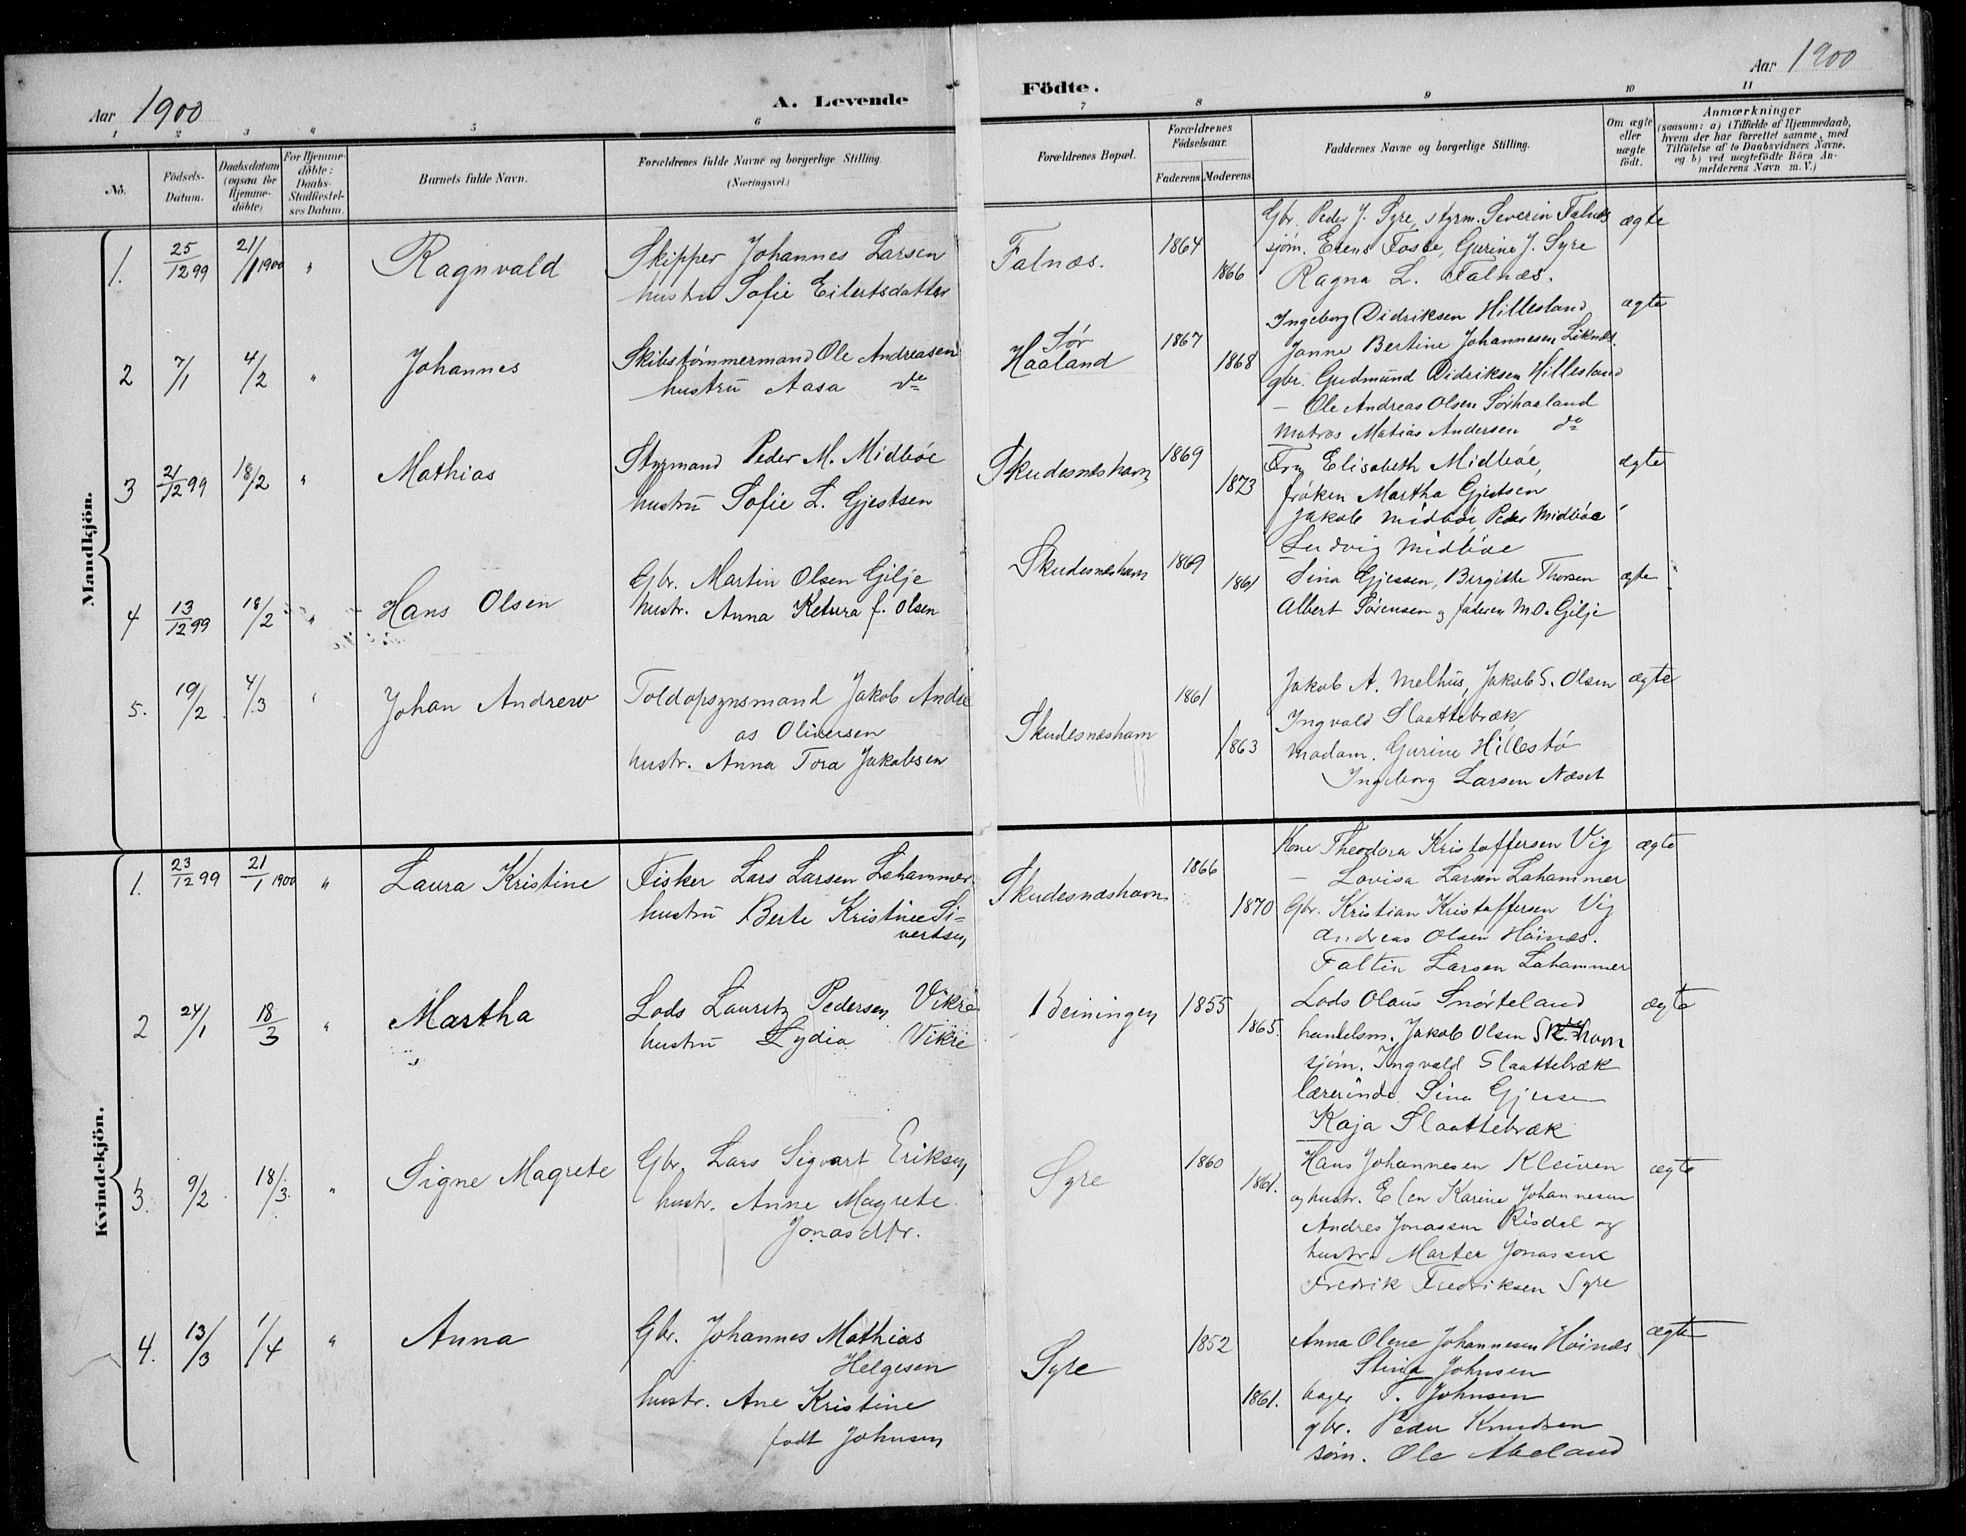 Aar 1900
A. Levende
Födte.
Aar 1900
1 2 3 4 5 6 7 8 9 10 11
No.
Födsels-Datum.
Daabsdatum (ogsaa for Hjemme-döbte)
For Hjemme-döbte: Daabs-Stadfæstel-ses Datum.
Barnets fulde Navn.
Forældrenes fulde Navne og borgerlige Stilling.
(Næringsvei.)
Forældrenes Bopæl.
Forældrenes Födselsaar.
Faderens. Moderens.
Faddernes Navne og borgerlige Stilling.
Om ægte eller uægte födt.
Anmærkninger
(saasom: a) i Tilfælde af Hjemmedaab,
hvem der har forrettet samme, med
Tilföielse af to Daabsvidners Navne,
og b) ved uægtefödte Börn An-
melderens Navn m. V.)
Mandkjön.
1. 25/12 99 21/1 1900 " Ragnvald
Skipper Johannes Larsen
hustru Sofie Eilertsdatter
Falnæs. 1864 1866
Gbr. Peder J. Syre, styrm. Severin Falnæs
sjøm. Erens Foste, Gurine J. Syre
Ragna L. Falnæs.
ægte
2 7/1 4/2 " Johannes
Skibstømmermand Ole Andreasen
hustru Aasa do
Sør
Haaland 1867 1868
Ingeborg Didriksen Hillesland
Janne Bertine Johannesen Liknæs.
gbr. Gudmund Didriksen Hillesland
— Ole Andreas Olsen Sørhaaland
Matros Matias Andersen do
ægte
3 21/12 99 18/2 " Mathias
Styrmand Peder M. Midbøe
hustru Sofie L. Gjestsen
Skudesneshavn 1869 1873
Fru Elisabeth Midbøe,
frøken Martha Gjestsen
Jakob Midbøe, Peder Midbøe
Ludvig Midbøe
ægte
4 13/12 99 18/2 " Hans Olsen
Gbr. Martin Olsen Gilje
hustr. Anna Ketura f. Olsen
Skudesneshavn 1869 1861
Sina Gjessen, Birgitte Thorsen
Albert Sørensen og faderen M.O. Gilje
ægte
5. 19/2 4/3 " Johan Andrew
Toldopsynsmand Jakob Andre
as Oliversen
hustr. Anna Tora Jakobsen
Skudesneshavn 1861 1863
Jakob A. Melhus, Jakob S. Olsen
Ingvald Slaattebræk,
madam. Gurine Hillestø
Ingeborg Larsen Næset
ægte
Kvindekjön.
1. 23/12 99 21/1 1900 " Laura Kristine
Fisker Lars Larsen Lahammer
hustru Berte Kristine Si-
vertsen
Skudesneshavn 1866 1870
Kone Theodora Kristoffersen Vig
— Lovisa Larsen Lahammer
Gbr. Kristian Kristoffersen Vig
Andreas Olsen Høinæs.
Faltin Larsen Lahammer
ægte
2 24/1 18/3 " Martha
Lods Lauritz Pedersen Vikre
hustru Lydia Vikre
Beiningen 1855 1865.
Lods Olaus Snørteland
handelsm. Jakob Olsen Sk.havn
sjøm. Ingvald Slaattebræk
lærerinde Sina Gjesse
Kaja Slaattebræk
ægte
3. 9/2 18/3. " Signe Magrete
Gbr. Lars Sigvart Eriksen
hustr. Anne Magrete
Jonasdtr.
Syre 1860 1861.
Hans Johannesen Kleiven
og hustr. Elen Karine Johannesen
Andres Jonassen Risdal og
hustr. Marter Jonassen
Fredrik Fredriksen Syre
ægte
4. 13/3 1/4 " Anna
Gbr. Johannes Mathias
Helgesen
hustr. Ane Kristine
født Johnsen
Syre 1852 1861.
Anna Olene Johannesen Høinæs
Stina Johnsen
bager T. Johnsen
gbr. Peder Knudsen
søm. Ole Abeland
ægte